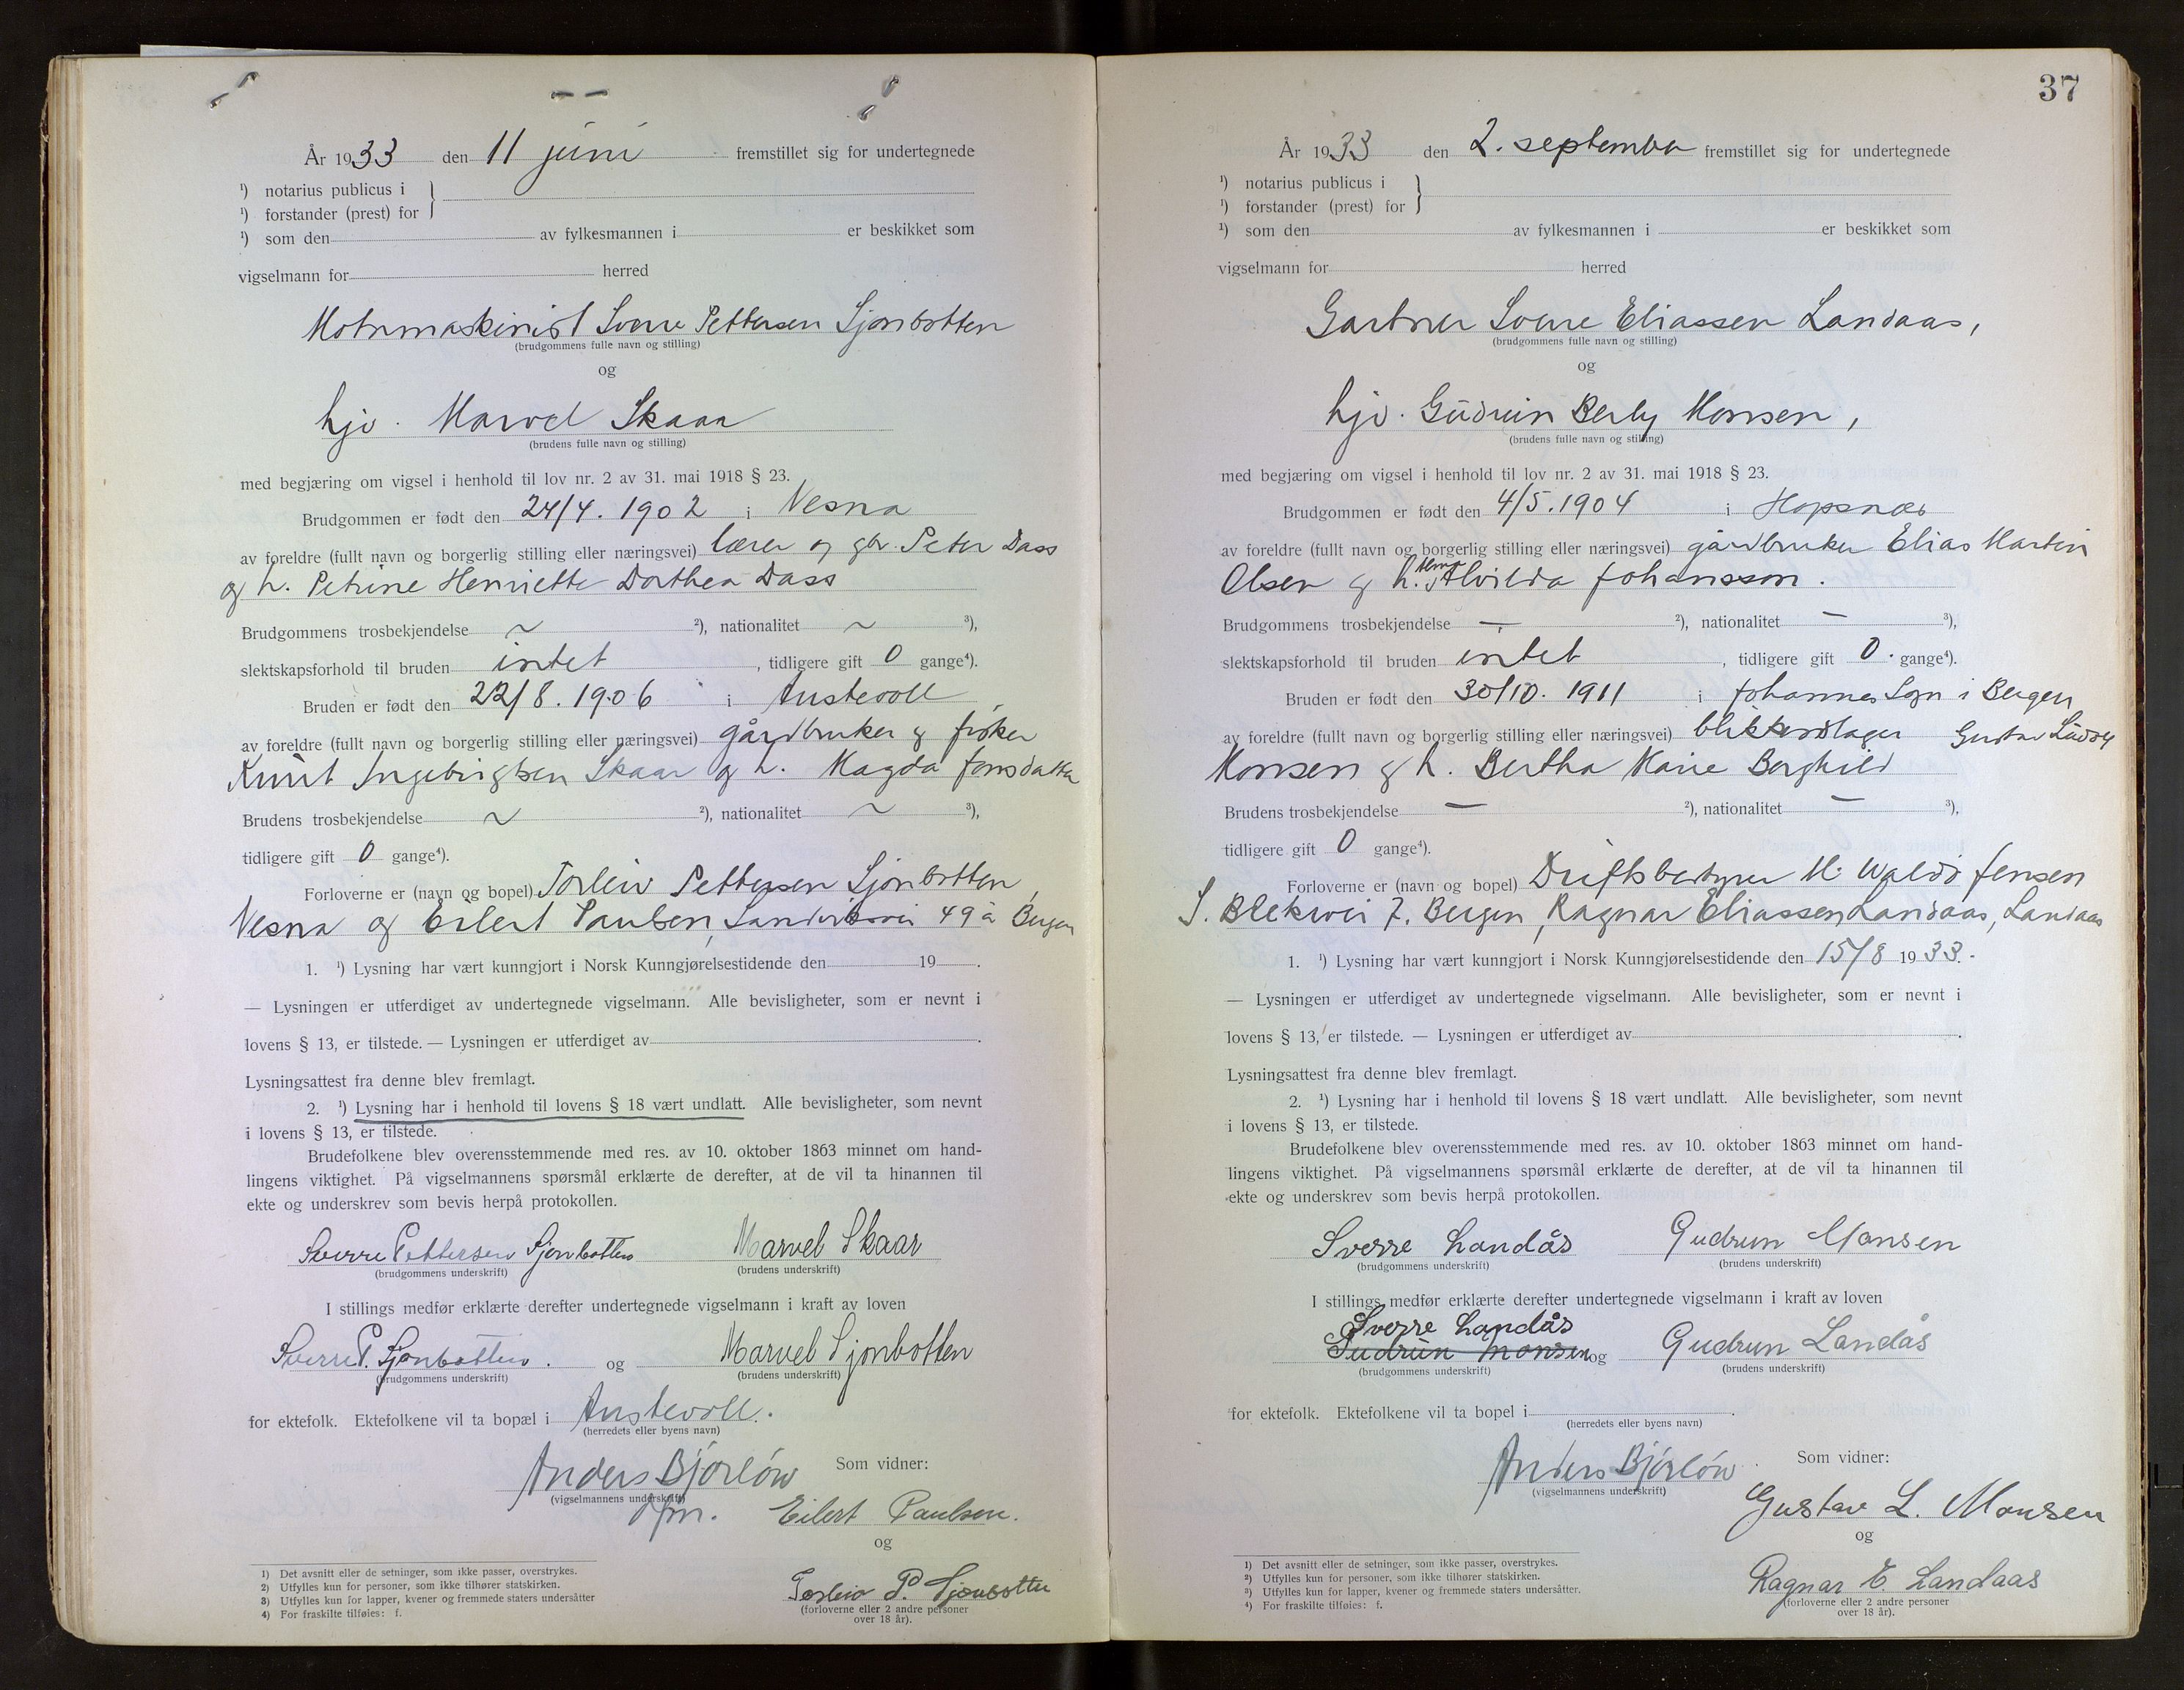 År 1933 den 11 juni fremstillet sig for undertegnede
¹) notarius publicus i
¹) forstander (prest) for
¹) som den av fylkesmannen i er beskikket som
vigselmann for herred
Motormaskinist Sverre Pettersen Sjonbotten
(brudgommens fulle navn og stilling)
og
hjv. Marvel Skaar
(brudens fulle navn og stilling)
med begjæring om vigsel i henhold til lov nr. 2 av 31. mai 1918 § 23.
Brudgommen er født den 24/4. 1902 i Nesna
av foreldre (fullt navn og borgerlig stilling eller næringsvei) lærer og gbr. Peter Dass
og h. Petrine Henriette Dorthea Dass
Brudgommens trosbekjendelse ~ ²), nationalitet ~ ³),
slektskapsforhold til bruden intet , tidligere gift 0 gange⁴).
Bruden er født den 22/8. 1906 i Austevoll
av foreldre (fullt navn og borgerlig stilling eller næringsvei) gårdbruker og fisker
Knut Ingebrigtsen Skaar og h. Magda Jonsdatter
Brudens trosbekjendelse ~ ²), nationalitet ~ ³),
tidligere gift 0 gange⁴).
Forloverne er (navn og bopel) Torleiv Pettersen Sjonbotten,
Nesna og Eilert Paulsen, Sandviksvei 49 a Bergen
1. ¹) Lysning har vært kunngjort i Norsk Kunngjørelsestidende den 19 .
— Lysningen er utferdiget av undertegnede vigselmann. Alle bevisligheter, som er nevnt i
lovens § 13, er tilstede. — Lysningen er utferdiget av .
Lysningsattest fra denne blev fremlagt.
2. ¹) Lysning har i henhold til lovens § 18 vært undlatt. Alle bevisligheter, som nevnt
i lovens § 13, er tilstede.
Brudefolkene blev overensstemmende med res. av 10. oktober 1863 minnet om hand-
lingens viktighet. På vigselmannens spørsmål erklærte de derefter, at de vil ta hinannen til
ekte og underskrev som bevis herpå protokollen.
Sverre Pettersen Sjonbotten Marvel Skaar
(brudgommens underskrift) (brudens underskrift)
I stillings medfør erklærte derefter undertegnede vigselmann i kraft av loven
Sverre P. Sjonbotten. og Marvel Sjonbotten
(brudgommens underskrift) (brudens underskrift)
for ektefolk. Ektefolkene vil ta bopæl i Austevoll.
(herredets eller byens navn)
Anders Bjørlöw Som vidner:
(vigselmannens underskrift)
Eilert Paulsen.
og
Torleiv P. Sjonbotten
(forloverne eller 2 andre personer
over 18 år).
1) Det avsnitt eller de setninger, som ikke passer, overstrykes.
2) Utfylles kun for personer, som ikke tilhører statskirken.
3) Utfylles kun for lapper, kvener og fremmede staters undersåtter
4) For fraskilte tilføies: f.
37
År 1933 den 2. september fremstillet sig for undertegnede
¹) notarius publicus i
¹) forstander (prest) for
¹) som den av fylkesmannen i er beskikket som
vigselmann for herred
Gartner Sverre Eliassen Landaas,
(brudgommens fulle navn og stilling)
og
hjv. Gudrun Berly Monsen,
(brudens fulle navn og stilling)
med begjæring om vigsel i henhold til lov nr. 2 av 31. mai 1918 § 23.
Brudgommen er født den 4/5. 1904 i Hopsnæs
av foreldre (fullt navn og borgerlig stilling eller næringsvei) gårdbruker Elias Martin
Olsen og h. Alma Alvilda Johansson.
Brudgommens trosbekjendelse — ²), nationalitet — ³),
slektskapsforhold til bruden intet , tidligere gift 0. gange⁴).
Bruden er født den 30/10. 1911 i Johannes Sogn i Bergen
av foreldre (fullt navn og borgerlig stilling eller næringsvei) blikkenslager Gustav Ludvig
Monsen og h. Bertha Marie Borghild
Brudens trosbekjendelse — ²), nationalitet — ³),
tidligere gift 0 gange⁴).
Forloverne er (navn og bopel) Driftsbestyrer M. Waldo Jensen
S. Blekevei 7. Bergen, Ragnar Eliassen Landaas, Landaas
1. ¹) Lysning har vært kunngjort i Norsk Kunngjørelsestidende den 15/8 1933.
— Lysningen er utferdiget av undertegnede vigselmann. Alle bevisligheter, som er nevnt i
lovens § 13, er tilstede. — Lysningen er utferdiget av .
Lysningsattest fra denne blev fremlagt.
2. ¹) Lysning har i henhold til lovens § 18 vært undlatt. Alle bevisligheter, som nevnt
i lovens § 13, er tilstede.
Brudefolkene blev overensstemmende med res. av 10. oktober 1863 minnet om hand-
lingens viktighet. På vigselmannens spørsmål erklærte de derefter, at de vil ta hinannen til
ekte og underskrev som bevis herpå protokollen.
Sverre Landås Gudrun Monsen
(brudgommens underskrift) (brudens underskrift)
I stillings medfør erklærte derefter undertegnede vigselmann i kraft av loven
Sverre Landås
Gudrun Monsen og Gudrun Landås
(brudgommens underskrift) (brudens underskrift)
for ektefolk. Ektefolkene vil ta bopel i .
(herredets eller byens navn)
Anders Bjørlöw Som vidner:
(vigselmannens underskrift)
Gustav L. Monsen
og
Ragnar E. Landaas
(forloverne eller 2 andre personer
over 18 år).
¹) Det avsnitt eller de setninger, som ikke passer, overstrykes.
²) Utfylles kun for personer, som ikke tilhører statskirken.
³) Utfylles kun for lapper, kvener og fremmede staters undersåtter.
⁴) For fraskilte tilføies: f.